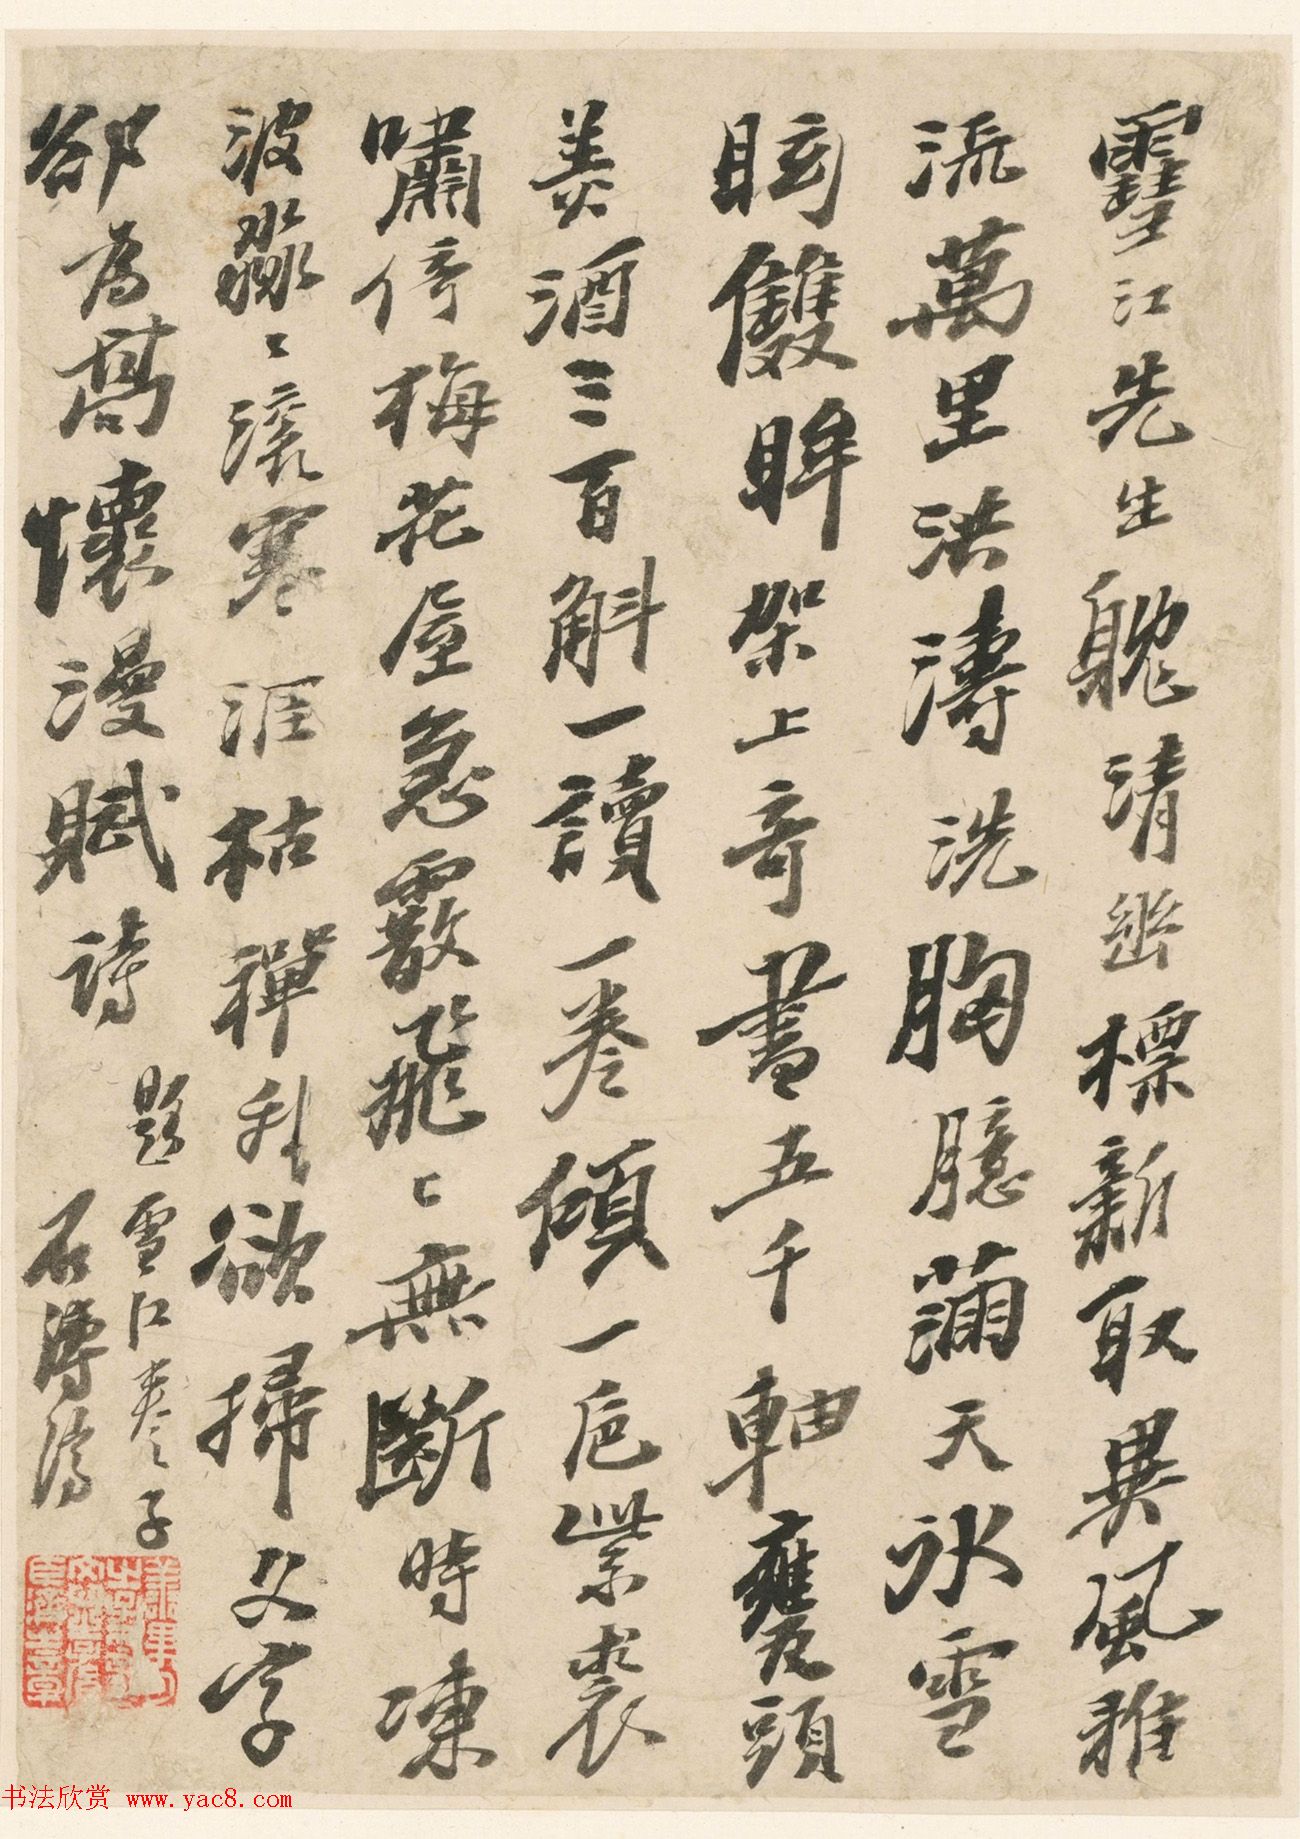 雪江先生躭清幽標新取異風雅
流萬里洪濤洗胸臆滿天冰雪
眩雙眸架上奇書五千軸甕頭
美酒三百斛一讀一卷傾一卮紫裘
嘯倚梅花屋急霰飛〻無斷時凍
波淼〻滾寒涯枯禪我欲掃文字
卻為高懷漫賦詩
題雪江卷子
石濤濟
书法欣赏 www.yac8.com